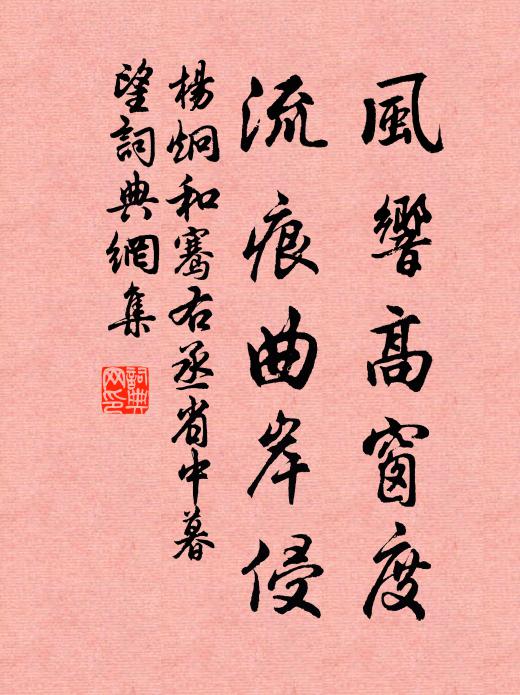 風響高窗度
流痕曲岸侵
楊炯和騫右丞省中暮
望詞典網集
詞典
网印